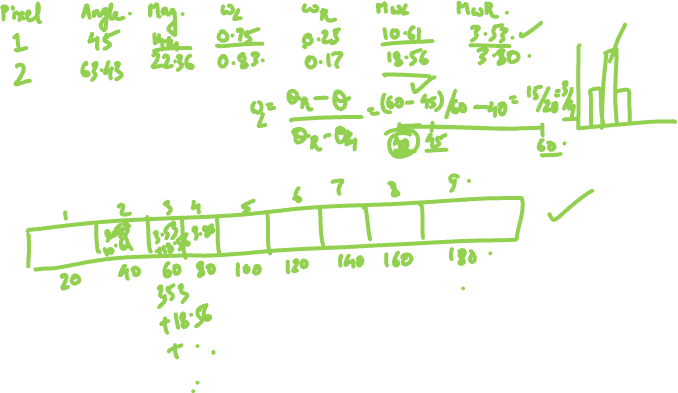 Pixel Angle. Mag. ωL ωR MωL MωR.
1 45 0.75 0.25 10.61 3.53
2 63.43 22.36 0.83 0.17 18.56 3.80
= θR-θ / θR-θL = (60-45)/60-40 = 15/20 = 3/4
40 45 60
1 2 3 4 5 6 7 8 9
3.53 3.80
20 40 60 80 100 120 140 160 180
353
+18.56
+